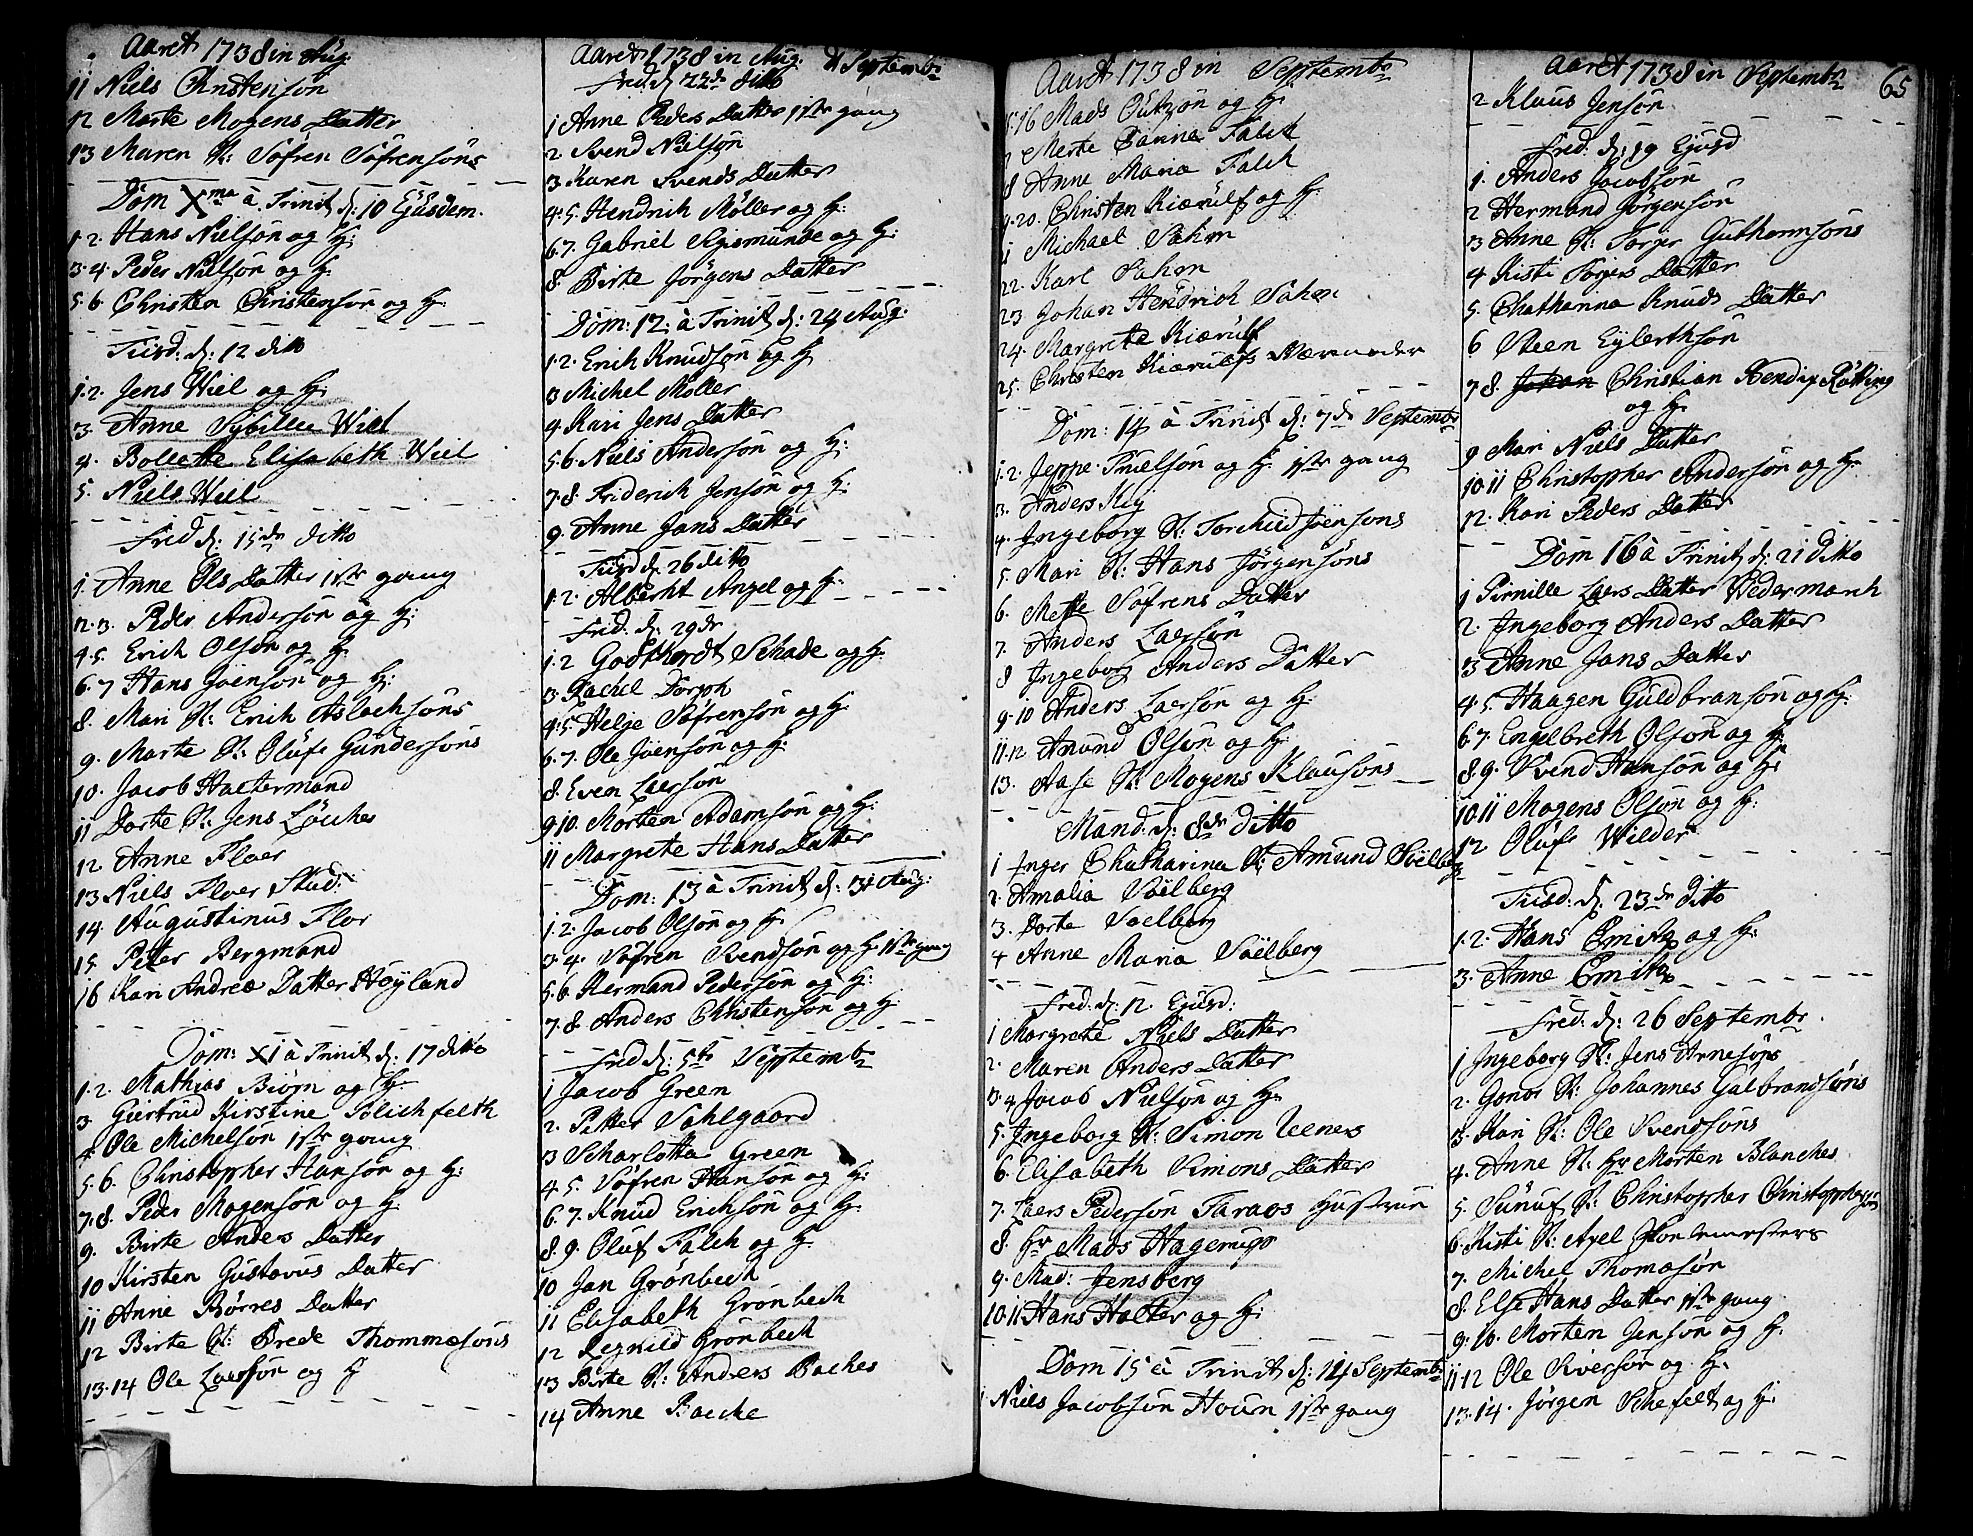 Aaret 1738 in Aug:
11 Niels Christensøn
12 Marte Mogens Datter
13 Maren K: Søfren Søfrensøns
Dom Xma à Trinit d: 10 Ejusdem.
1.2. Hans Nielsøn og H:
3.4. Peder Nielsøn og H:
5.6 Christen Christensøn og H:
Tiisd: d: 12 ditto
1.2. Jens Wiel og H:
3. Anne Sybille Wiel
4. Bollette Elisabeth Wiel
5. Niels Wiel
Fred d: 15de ditto
1. Anne Ols Datter 1ste gang
2.3. Peder Andersøn og H:
4.5. Erich Olsøn og H:
6.7 Hans Joensøn og H:
8. Mari K: Erich Aslachsøns
9. Marte K: Oluf Gundersøns
10. Jacob Haltermand
11 Dorte K: Jens Løches
12 Anne Floer
13 Niels Floer Stud:
14. Augustinus Flor
15. Peter Bergmand
16 Kari Andreæ Datter Høyland
Dom: XI à Trinit d: 17 ditto
1.2. Mathias Biørn og H:
3. Giertrud Kirstine Tolichfelth
4. Ole Michelsøn 1ste gang
5.6. Christopher Hansøn og H:
7.8. Peder Mogensøn og H:
9. Birte Anders Datter
10 Kirsten Gustavus Datter
11 Anne Børres Datter
12 Birte K: Brede Thommæsøns
13.14 Ole Laersøn og H
Aaret 1738 in Aug. & Septembr
Fred d: 22de ditto
1 Anne Peders Datter 1ste gang
2. Svend Nielsøn
3. Karen Svends Datter
4.5. Hendrich Møller og H:
6.7. Gabriel Sigismunde og H:
8. Birte Jørgens Datter
Dom: 12: à Trinit d: 24 Aug:
1.2. Erich Knudsøn og H
3 Michel Møller
4 Kari Jens Datter
5.6. Niels Andersøn og H:
7.8. Friderich Jensøn og H:
9. Anne Jans Datter
Tiisd d: 26 ditto
1.2. Albercht Angel og H:
Fred: d: 29de
1.2 Godthardt Schade og H:
3. Rachel Dorph
4.5. Helje Søfrensøn og H:
6.7. Ole Joensøn og H:
8. Even Laersøn
9.10. Morten Adamsøn og H:
11 Margrete Hans Datter
Dom: 13 à Trinit d: 31 Aug:
1.2. Jacob Olsøn og H:
3.4. Søfren Svendsøn og H: 1ste gang
5.6. Hermand Pedersøn og H:
7.8. Anders Christensøn og H:
Fred d: 5te Septembr
1 Jacob Green
2. Petter Sahlgaard
3 Scharlotta Green
4.5. Søfren Hansøn og H:
6.7. Knud Erichsøn og H:
8.9. Oluf Falch og H:
10 Jan Grønbech
11 Elisabeth Grønbech
12 Regnild Grønbech
13 Birte K: Anders Baches
14 Anne Bache
Aaret 1738 in Septembr
15.16 Mads Outzøn og H:
Merte Banne Falch
8 Anne Maria Falch
9.20. Christen Kiærulf og H:
Michael Sahm
22. Karl Sahm
23 Johan Hendrich Sahm
24. Margrete Kiærulf
25. Christen Kiærulfs Værmoder
Dom: 14 à Trinit d: 7de Septembr
1.2. Jeppe Truelsøn og H: 1ste gang
3. Anders Kij
4. Ingeborg K: Torchild Joensøns
5. Mari K: Hans Jørgensøns
6. Mette Søfrens Datter
7. Anders Laersøn
8 Ingeborg Anders Datter
9.10 Anders Laersøn og H:
11.12 Amund Olsøn og H:
13. Aase K: Mogens Klausøns
Mand: d: 8de ditto
1 Inger Chatharina K: Amund Soelberg
2. Amalia Soelberg
3. Dorte Soelberg
4 Anne Maria Soelberg
Fred: d: 12. Ejusd:
1 Margrete Niels Datter
2. Maren Anders Datter
3.4 Jacob Nielsøn og H:
5. Ingeborg K: Simon Veeners
6. Elisabeth Simons Datter
7. Laers Pedersøn Faraos Hustrue
8. Hr Mads Hagerup
9. Mad: Jensberg
10.11 Hans Halter og H:
Dom 15 à Trinit d: 14 Septembr
1 Niels Jacobsøn Houn 1ste gang
Aaret 1738 in Septembr
65
2 Klaus Jensøn
Fred: d: 19 Ejusd
1. Anders Jacobsøn
2 Hermand Jørgensøn
3 Anne K: Torjer Guthormsøns
4 Kisti Torjers Datter
5. Chatharina Knuds Datter
6 Steen Eylerthsøn
7.8. Johan Christian Bendix Røtting
og H:
9 Mari Niels Datter
10.11 Christopher Andersøn og H:
12. Kari Peders Datter
Dom 16 à Trinit d: 21 ditto
1 Pernille Laers Datter Vedermarch
2. Ingeborg Anders Datter
3 Anne Jans Datter
4.5. Haagen Guldbransøn og H:
6.7. Engelbreth Olsøn og H:
8.9. Svend Hansøn og H:
10.11 Mogens Olsøn og H:
12 Oluf Wilder
Tiisd: d: 23de ditto
1.2. Hans Smith og H:
3. Anne Smith
Fred: d: 26 Septembr.
1 Ingeborg K: Jens Arnesøns
2. Gonor K: Johannes Gulbrandsøns
3. Kari K: Ole Svendsøns
4. Anne K: Hr Morten Blanches
5. Sunuf K: Christopher Christophersøns
6. Kisti K: Axel
7. Michel Thomæsøn
8. Else Hans Datter 1ste gang
9.10. Morten Jensøn og H:
11.12 Ole Siversøn og H:
13.14. Jørgen Schefelt og H: